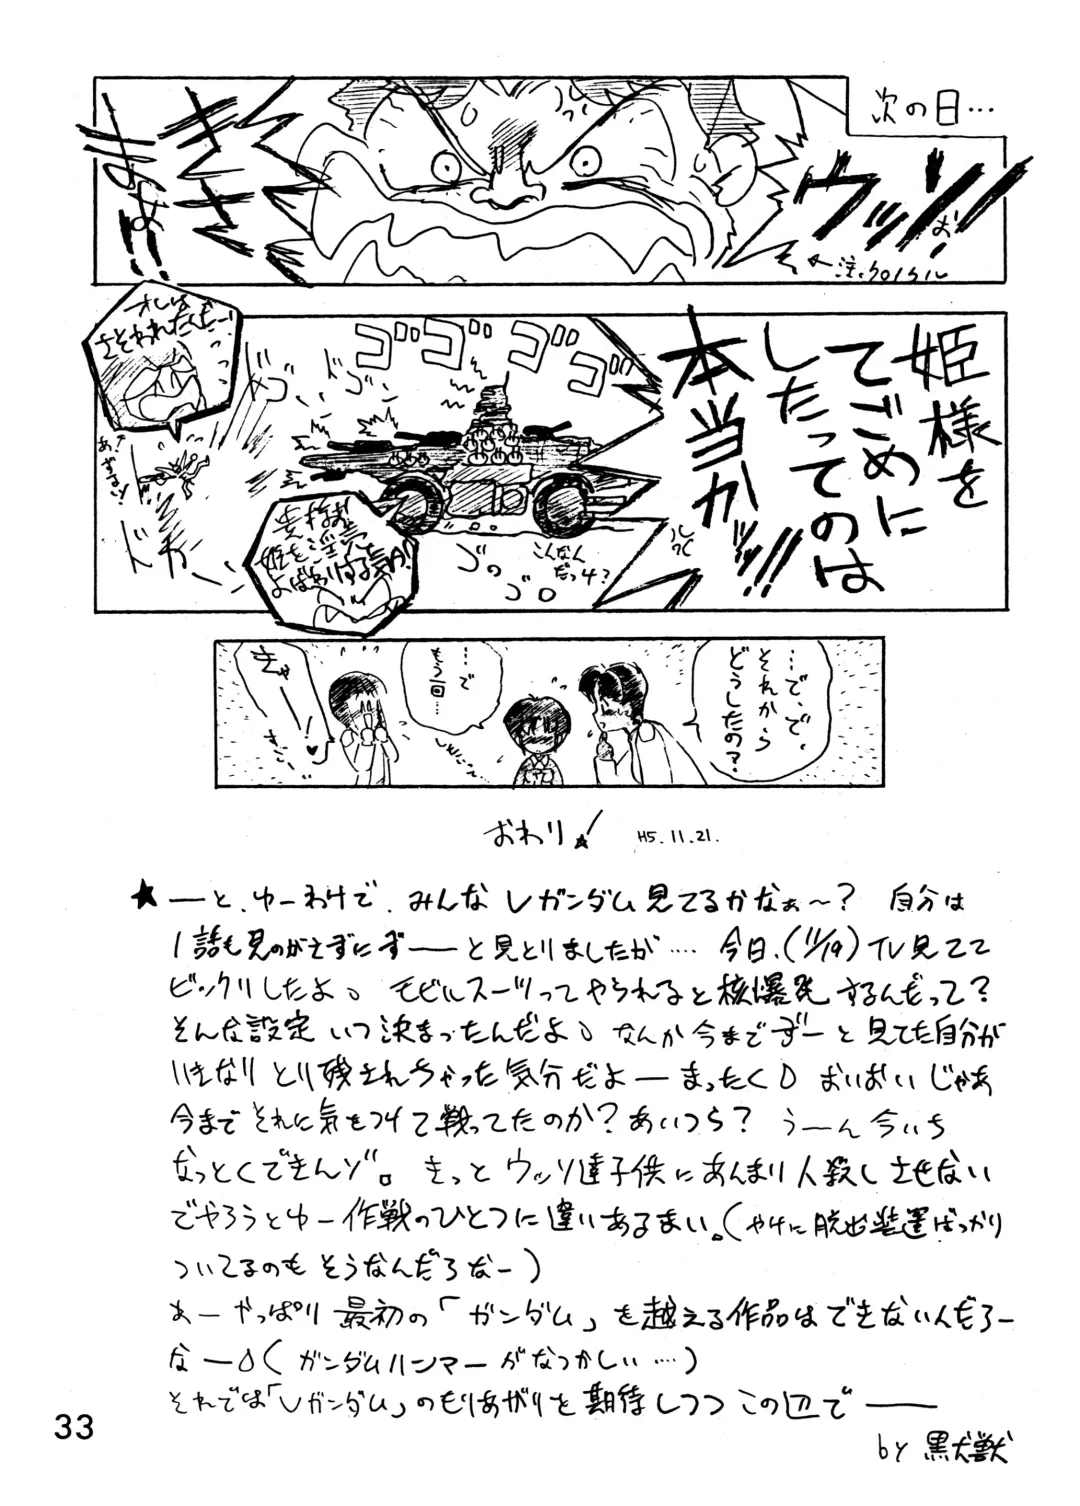 次の日…
ウッソ!
お
きさ
まぁ!!
姫様を
てごめに
したってのは
本当か!!!
ゴゴゴゴ
オレは
さそわれたんだー!
ドドゴ
ドカーン
ゴゴゴ
こんなん
だっけ?
…で、で、
それから
どうしたの?
…で
もう一回…
きゃー!♥
おわり! H5.11.21.
★ーと、ゆーわけで、みんな Vガンダム見てるかなぁ〜? 自分は
1話も見のがさずにずーーと見とりましたが…. 今日、(11/19) TV見てて
ビックリしたよ。 モビルスーツってやられると核爆発するんだって?
そんな設定 いつ決まったんだよ。なんか今までずーと見てた自分が
いきなり とり残されちゃった気分だよーまったく。 おいおい じゃあ
今まで それに気をつけて戦ってたのか?あいつら? うーん今いち
なっとくできんゾ。 きっと ウッソ達子供にあんまり人殺しさせない
でやろうとゆー作戦のひとつに違いあるまい。(やけに脱出装置ばっかり
ついてるのも そうなんだろなー)
あーやっぱり 最初の「ガンダム」を越える作品はできないんだろー
なー。(ガンダムハンマーがなつかしい…)
それでは「Vガンダム」のもりあがりを期待しつつ この辺でーー
by 黒犬獣
33